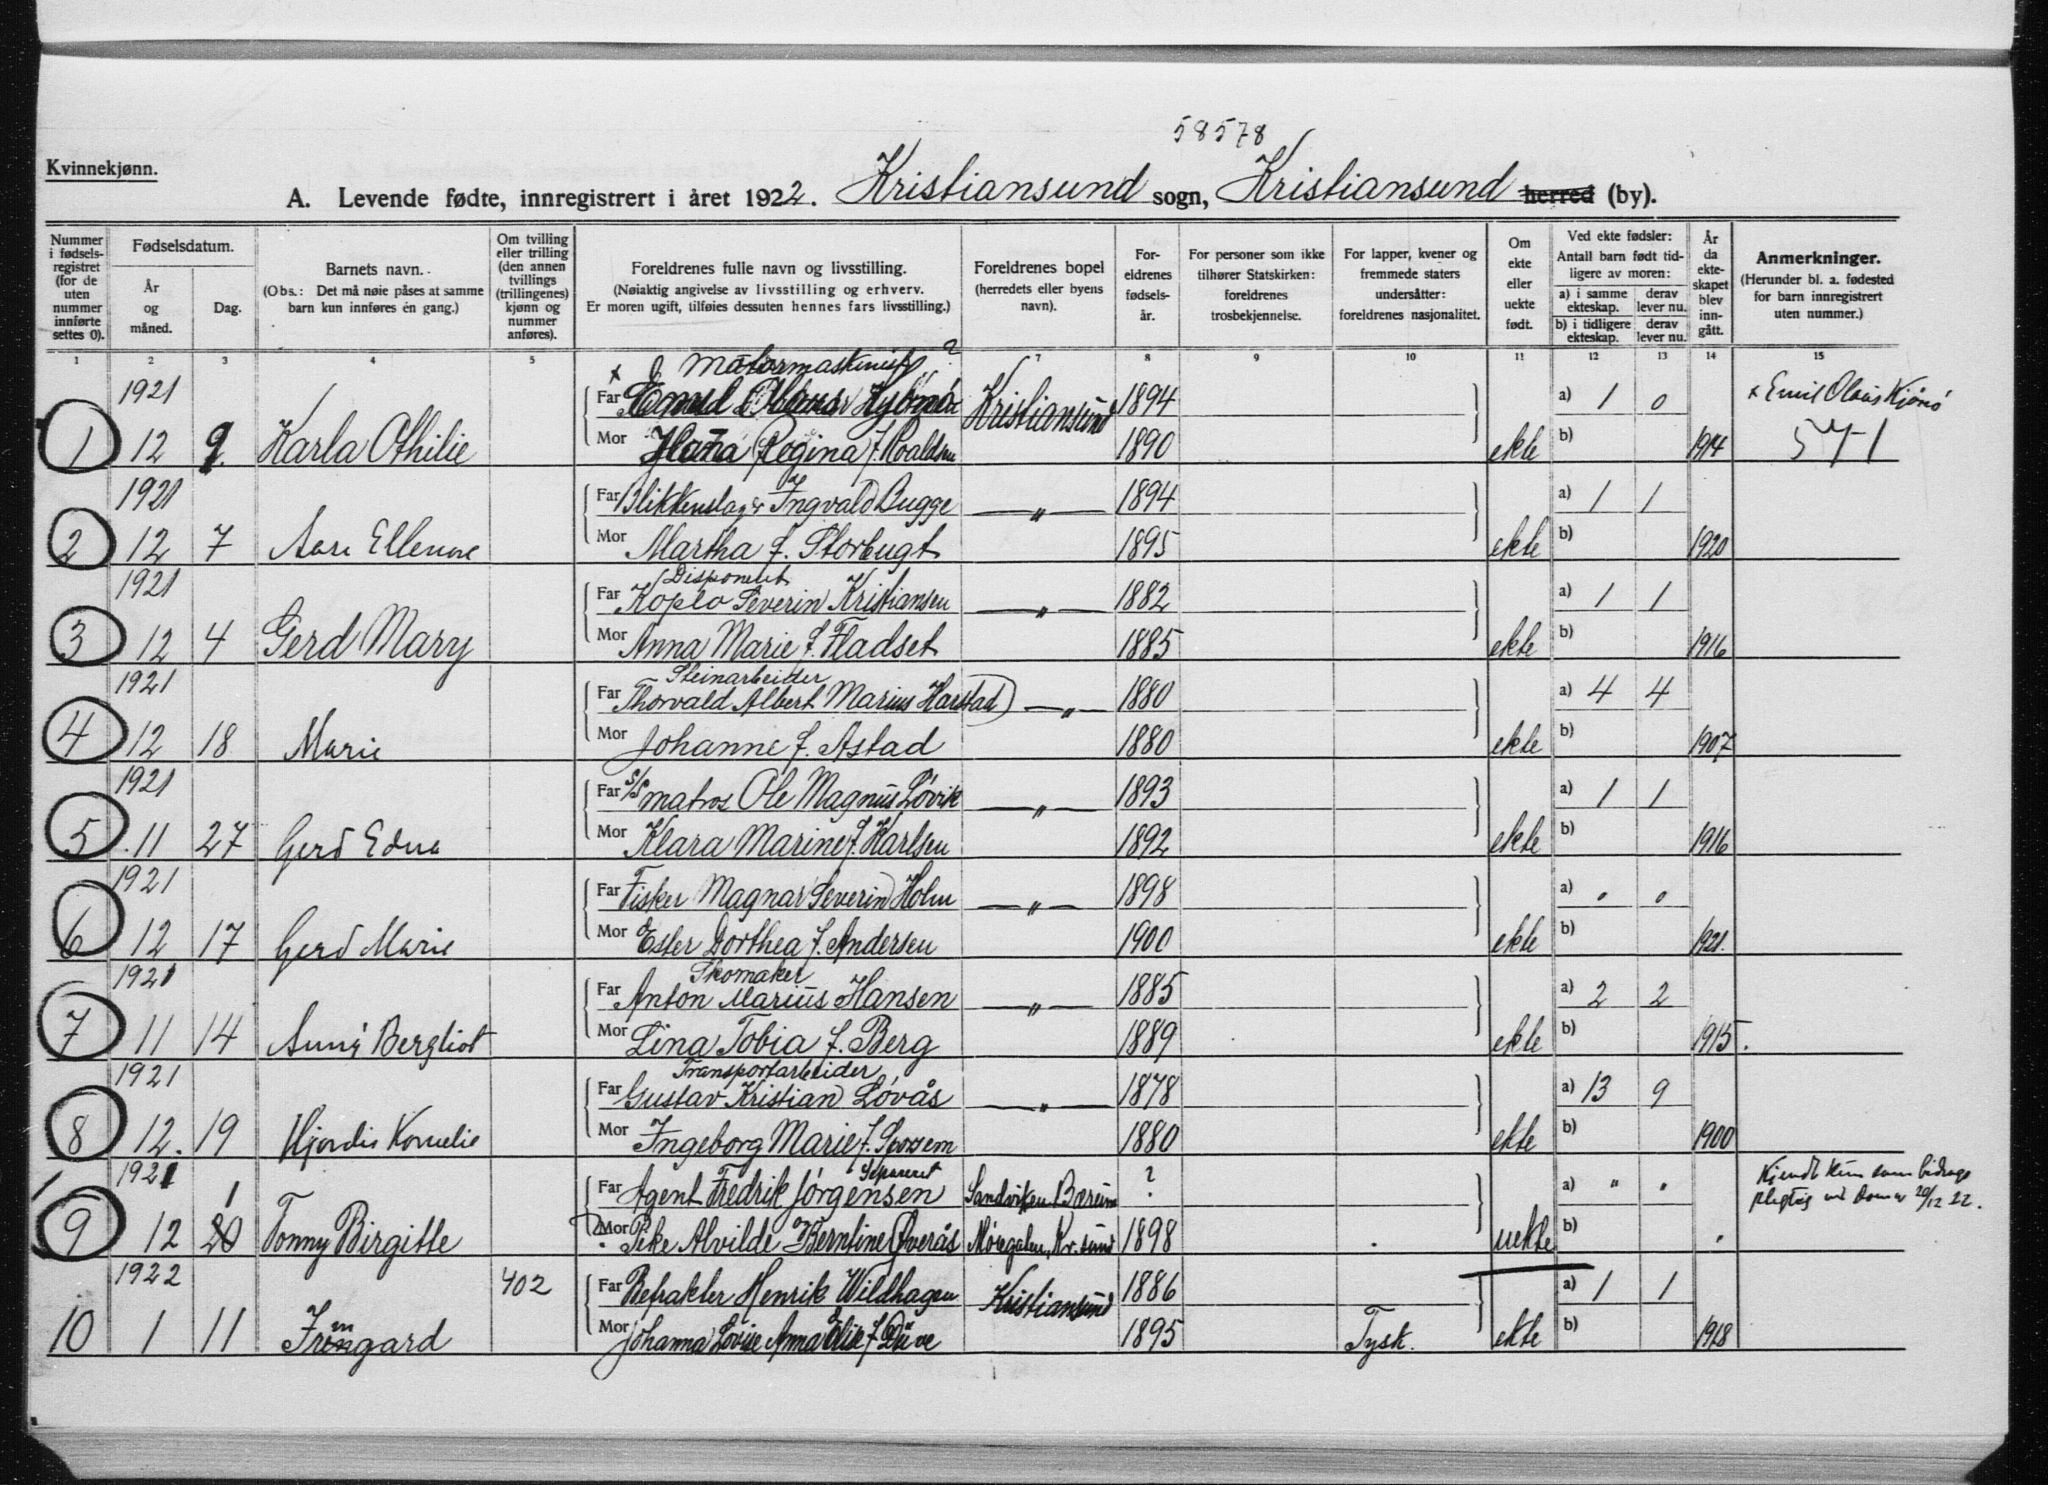 58578
Kvinnekjønn.
A. Levende fødte, innregistrert i året 1922. Kristiansund sogn, Kristiansund herred (by).
Nummer i fødsels-registret (for de uten nummer innførte settes 0).
Fødselsdatum.
År og måned.
Dag.
Barnets navn.
(Obs.: Det må nøie påses at samme barn kun innføres én gang.)
Om tvilling eller trilling (den annen tvillings (trillingenes) kjønn og nummer anføres).
Foreldrenes fulle navn og livsstilling.
(Nøiaktig angivelse av livsstilling og erhverv. Er moren ugift, tilføies dessuten hennes fars livsstilling.)
Foreldrenes bopel (herredets eller byens navn).
For-eldrenes fødsels-år.
For personer som ikke tilhører Statskirken: foreldrenes trosbekjennelse.
For lapper, kvener og fremmede staters undersåtter: foreldrenes nasjonalitet.
Om ekte eller uekte født.
Ved ekte fødsler: Antall barn født tid-ligere av moren:
a) i samme ekteskap. derav lever nu.
b) i tidligere ekteskap. derav lever nu.
År da ekte-skapet blev inn-gått.
Anmerkninger.
(Herunder bl. a. fødested for barn innregistrert uten nummer.)
1 2 3 4 5 7 8 9 10 11 12 13 14 15
Motormaskinist ?
1921 Far Kristiansund 1894 a) 1 0 x Emil Olaus Kjønø
1 12 9. Karla Othilie Mor Regina f. Roaldsen 1890 ekte b) 1914 571
1921 Far Blikkenslager Ingvald Bugge — " — 1894 a) 1 1
2 12 7 Mor Martha f. Storbugt 1895 ekte b) 1920
Disponent
1921 Far Severin Kristiansen — " — 1882 a) 1 1
3 12 4 Gerd Mary Mor Anna Marie f. Fladset 1885 ekte b) 1916
Steinarbeider
1921 Far Thorvald Albert Marius Harstad) — " — 1880 a) 4 4
4 12 18 Marie Mor Johanne f. Astad 1880 ekte b) 1907
1921 Far S/S matros Ole Magnus Løvik — " — 1893 a) 1 1
5 11 27 Gerd Edna Mor Klara Marine f. Karlsen 1892 ekte b) 1916
1921 Far Fisker Magnar Severin Holm — " — 1898 a) 0 0
6 12 17 Gerd Marie Mor Ester Dorthea f. Andersen 1900 ekte b) 1921.
Skomaker
1921 Far Anton Marius Hansen — " — 1885 a) 2 2
7 11 14 Auny Bergliot Mor Lina Tobia f. Berg 1889 ekte b) 1915.
Transportarbeider
1921 Far Gustav Kristian Løvås — " — 1878 a) 13 9
8 12. 19 Hjordis Kornelie Mor Ingeborg Marie f. 1880 ekte b) 1900
Separert
1921 1 Far Agent Fredrik Jørgensen Sandviken Bærum ? a) " " Kjendt kun som bidrags
pligtig ved Dom av 20/12 22.
9 12 20 Tonny Birgitte Mor Pike Alvilde Berntine Øverås Kr.sund 1898 uekte b)
1922 402 Far Befrakter Henrik Wildhagen Kristiansund 1886 a) 1 1
10 1 11 Irmgard Mor Johanna Lovise Anna Elise f. Düve 1895 Tysk. ekte b) 1918